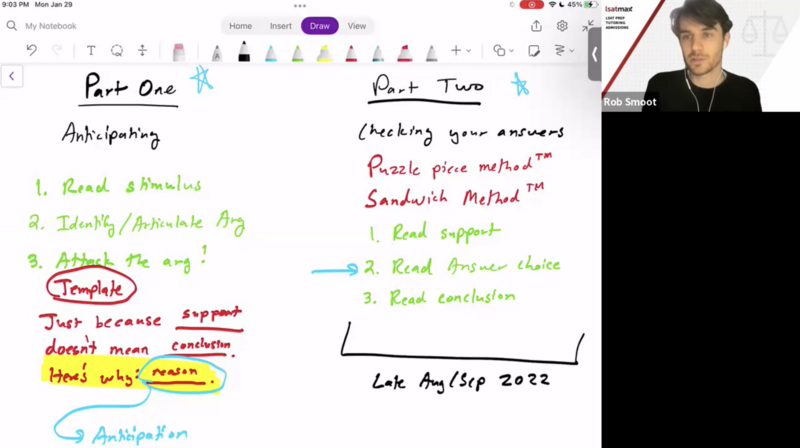 9:03 PM Mon Jan 29
45%
My Notebook
Home Insert Draw View
Part One
Anticipating
1. Read stimulus
2. Identify/Articulate Arg
3. Attack the arg!
Template
Just because support
doesn't mean conclusion.
Here's why: reason.
Anticipation
Part Two
Checking your answers
Puzzle piece method™
Sandwich Method™
1. Read support
2. Read Answer choice
3. Read conclusion
Late Aug/Sep 2022
lsatmax
LSAT PREP
TUTORING
ADMISSIONS
Rob Smoot